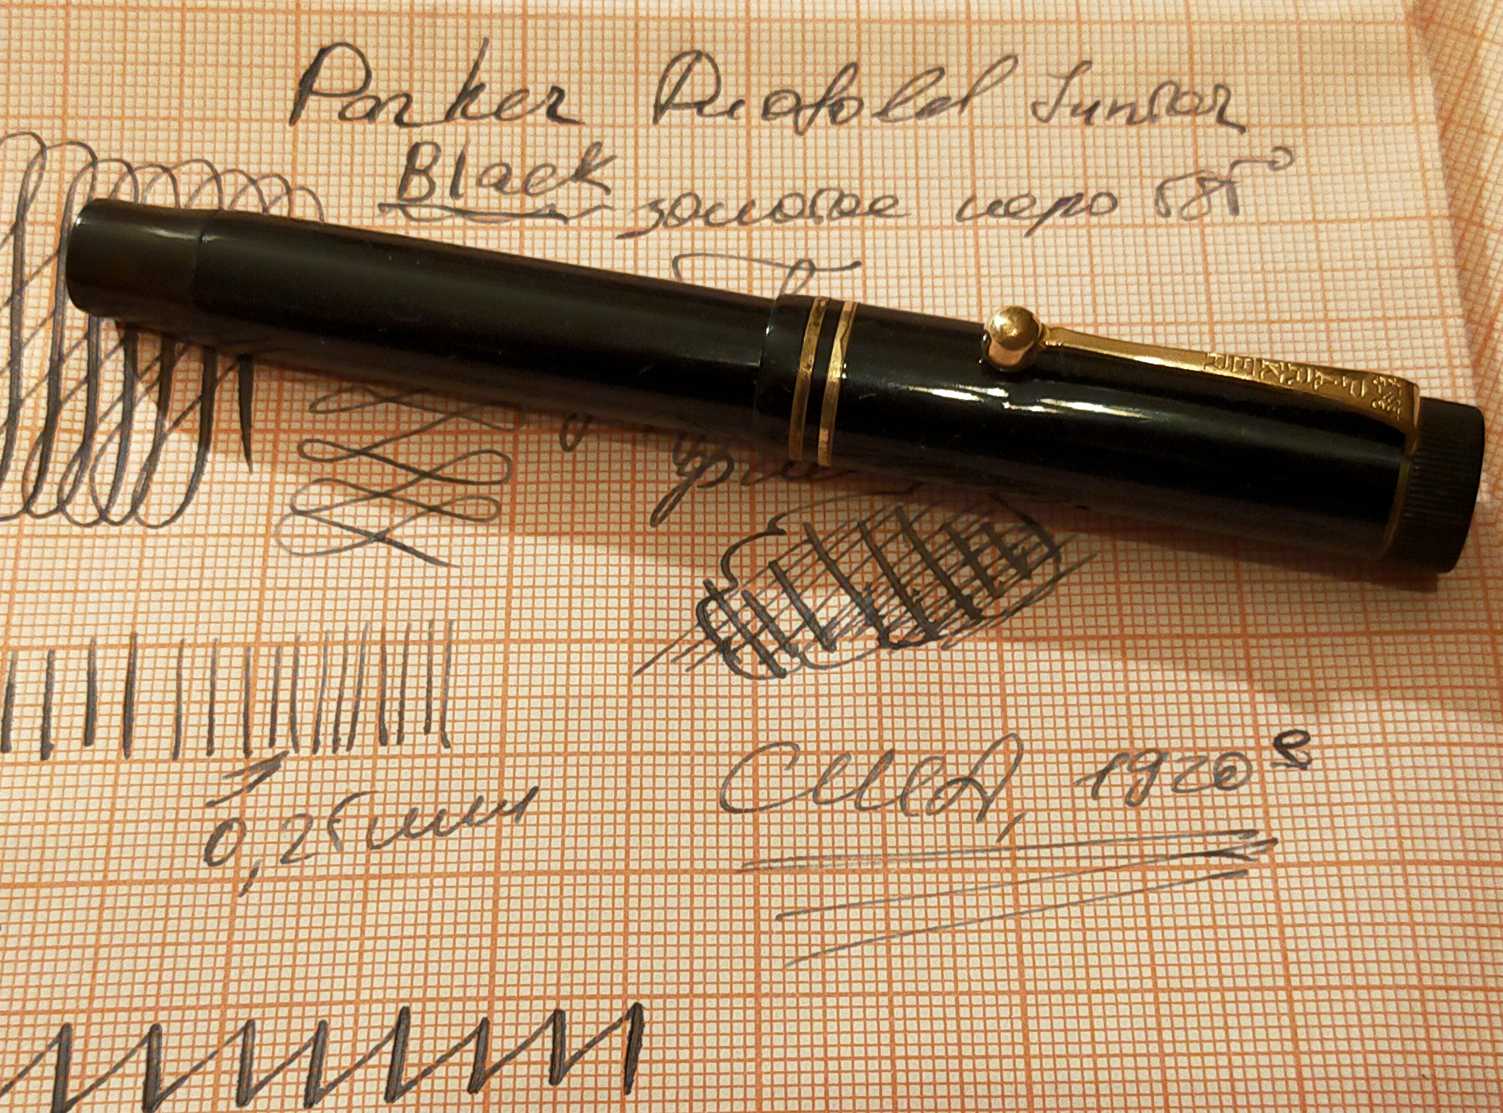 Parker Duofold Junior
Black золотое перо 585°
PARKER
0,25 мм
США, 1920е